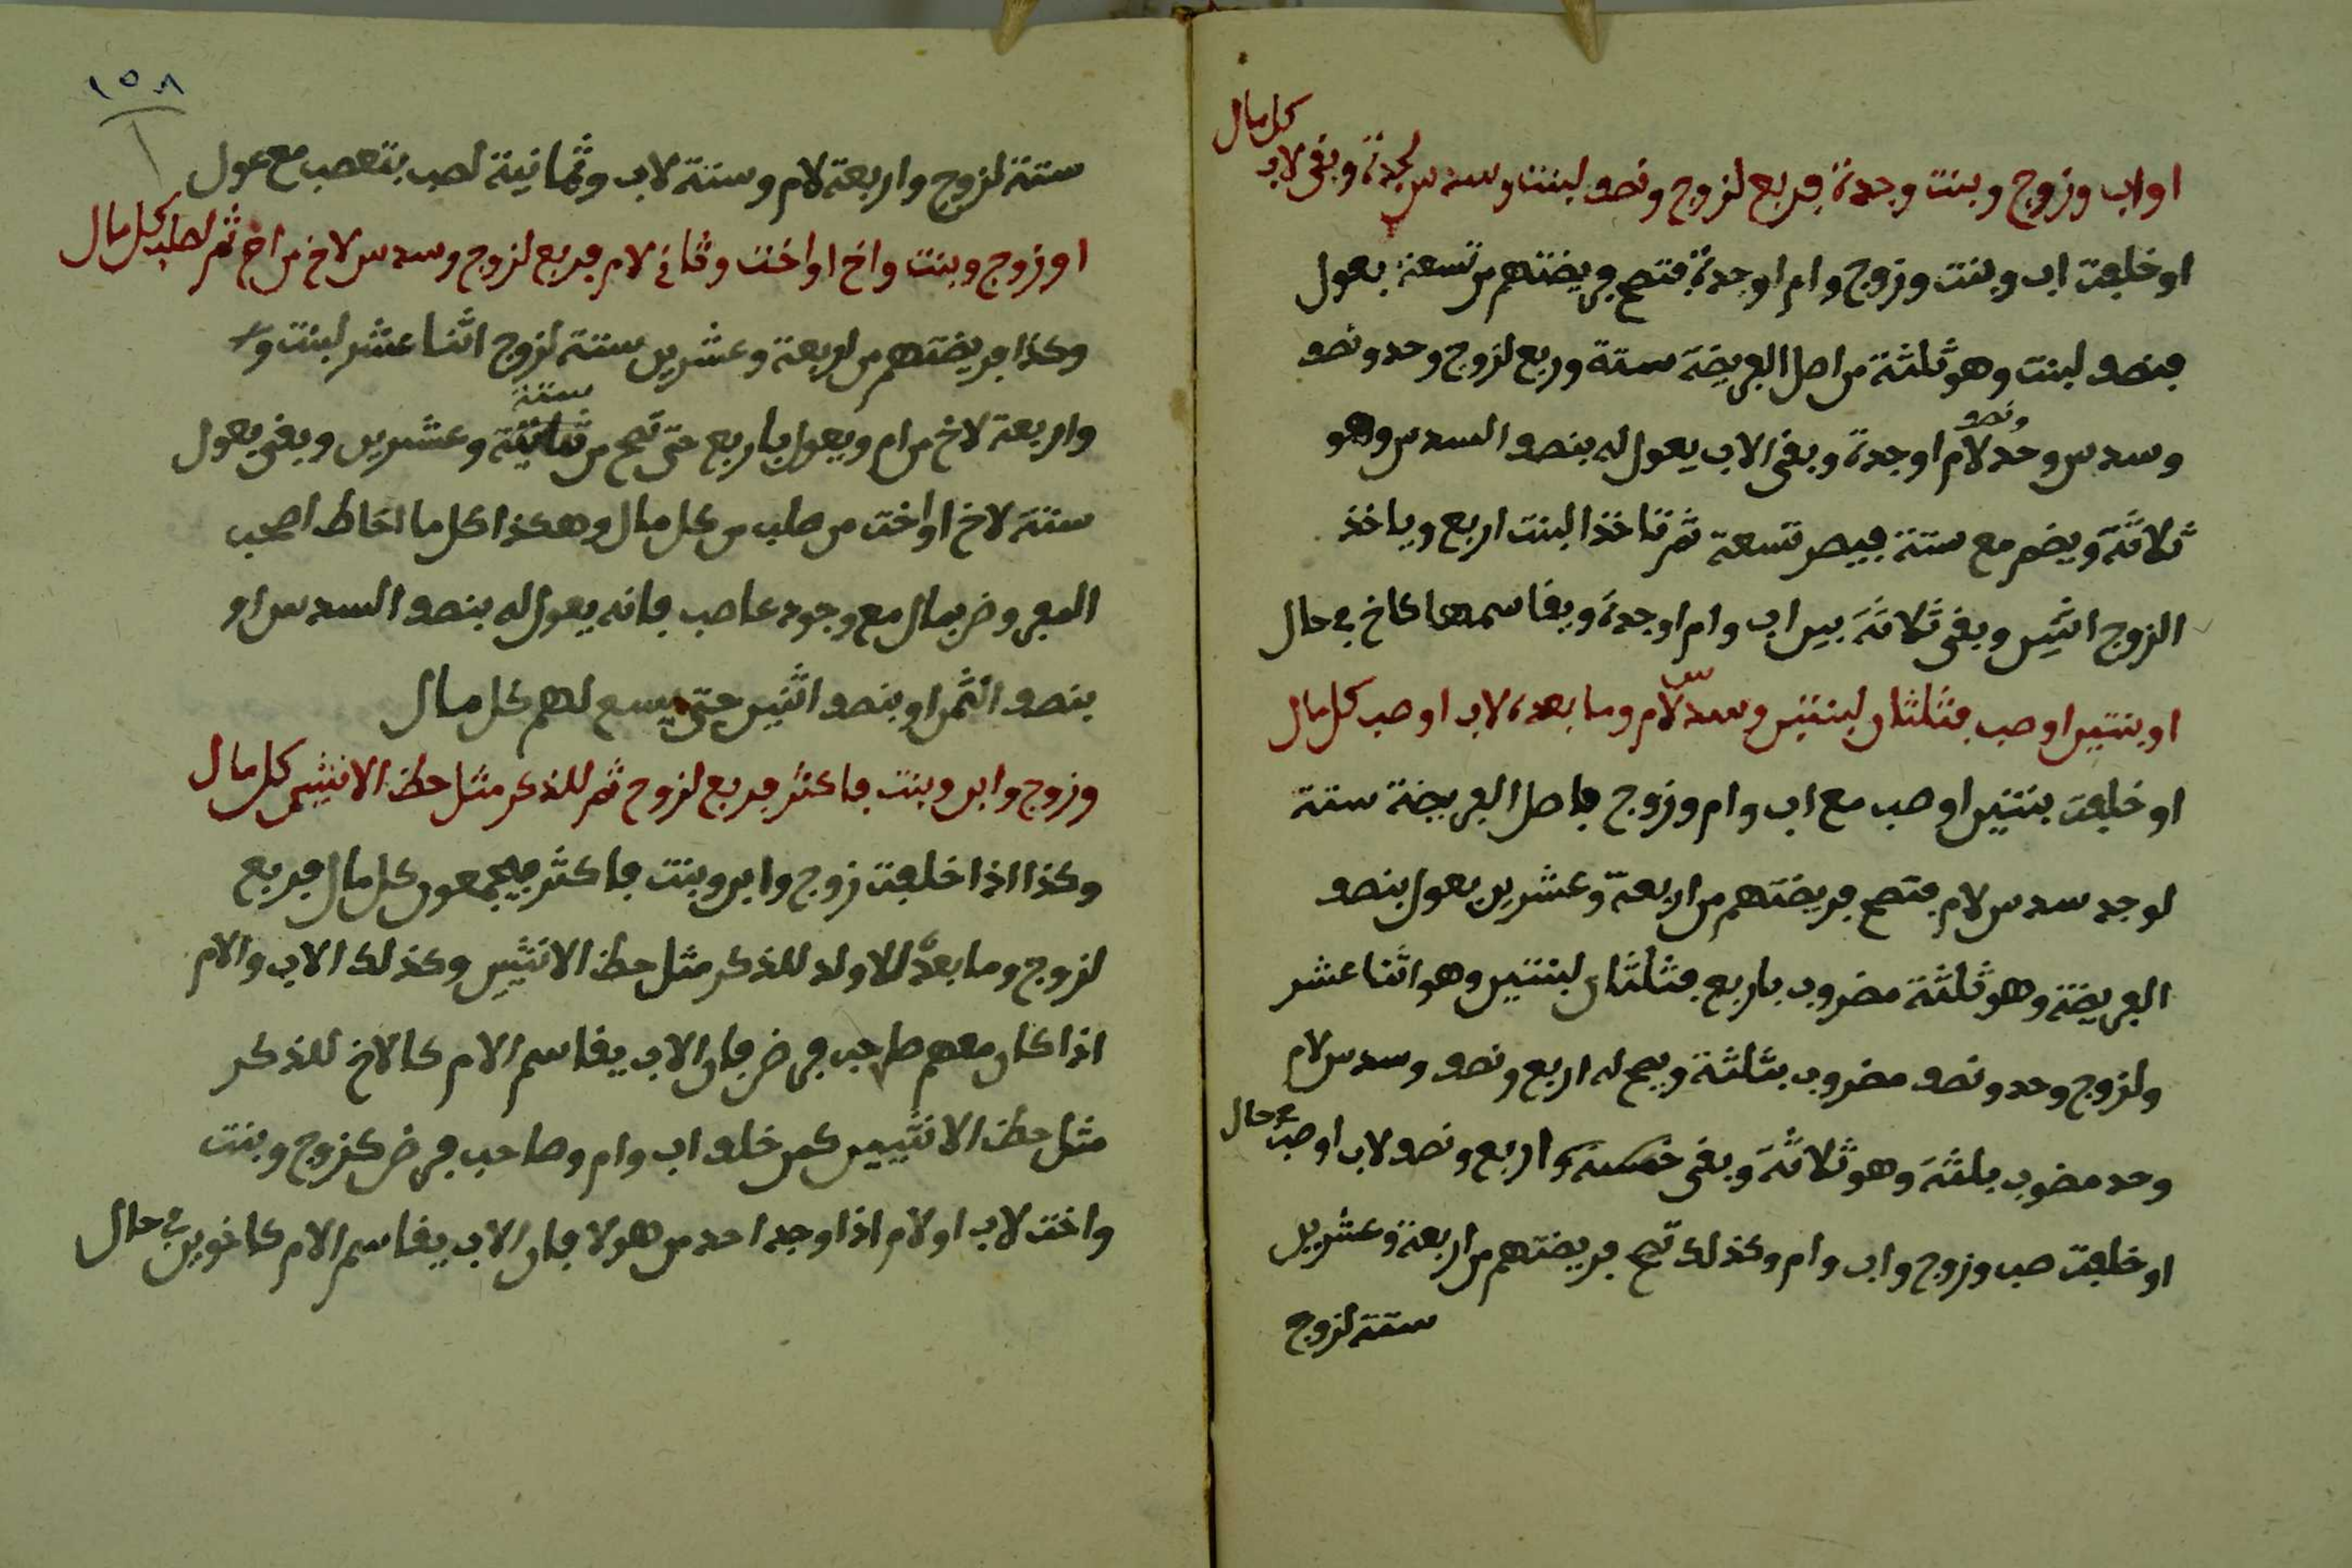 اواب وزوج وبنت وجدة فربع لزوج ونصف لبنت وسدس لجدة وبقى لاب كل مال
او خلفت اب وبنت وزوج وام اوجدة فتصح فريضتهم من تسعة بعول
فنصف لبنت وهو ثلثة من اصل الفريضة ستة وربع لزوج وحد ونصف
وسدس وحد لام اوجدة وبقى الاب يعول له بنصف السدس وهو
ونصف
ثلاثة ويضم مع ستة فيصر تسعة ثم تاخذ البنت اربع وياخذ
الزوج اثنين وبقى ثلاثة بين اب وام اوجدة ويقاسمها كاخ في حال
او بنتين اوصب فثلثان لبنتين وسدس لام وما بعده لاب اوصب كل مال
او خلفت بنتين اوصب مع اب وام وزوج فاصل الفريضة ستة
لوجد سدس لام فتصح فريضتهم من اربعة وعشرين بعول بنصف
الفريضة وهو ثلثة مضروب باربع فثلثان لبنتين وهو اثنا عشر
ولزوج وحد ونصف مضروب بثلثة ويصح له اربع ونصف وسدس لام
وحد مضوب بلثة وهو ثلاثة وبقى اربع ونصف لاب اوصب في حال
او خلفت صب وزوج واب وام وكذلك تصح فريضتهم من اربعة وعشرين
ستة لزوج
١٥٨
ستة لزوج واربعة لام وستة لاب وثمانية لصب بتعصب مع عول
اوزوج وبنت واخ اواخت وثاني لام فربع لزوج وسدس لاخ من اخ ثم لصلب كل مال
وكذا فريضتهم من اربعة وعشرين ستة لزوج اثنا عشر لبنت
واربعة لاخ من ام ويعول باربع حتى تصح من ثمانية وعشرين وبقى بعول
ستة
ستة لاخ اواخت من صلب من كل مال وهكذا كل ما احاط اصحب
الفروض بمال مع وجود عاصب فانه يعول له بنصف السدس او
بنصف الثمن او بنصف اثنين حتى يسع لهم كل مال
وزوج وابن وبنت فاكثر فربع لزوج ثم للذكر مثل حظ الانثيين كل مال
وكذا اذا خلفت زوج وابن وبنت فاكثر فيجمعون كل مال فربع
لزوج وما بعده للاولد للذكر مثل حظ الانثيين وكذلك الاب والام
اذا كان معهم صاحب فرض فان الاب يقاسم الام كالاخ للذكر
مثل حظ الانثيين كمن خلف اب وام وصاحب فرض كزوج وبنت
واخت لاب اولام اذا وجد احد من هولا فان الاب يقاسم الام كاخوين في حال